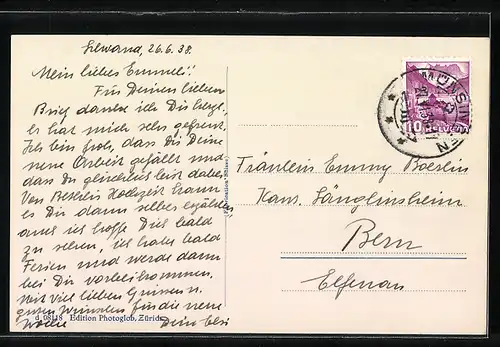 26.6.38.
Mein liebes Emmeli!
Für Deinen lieben
Brief danke ich Dir herzl.,
es hat mich sehr gefreut.
Ich bin froh, dass Dir Deine
neue Arbeit gefällt und
dass Du glücklich bist dabei.
Von Hochzeit kann
es Dir dann selber erzählen,
auch ich hoffe Dich bald
zu sehen, ich habe bald
Ferien und werde dann
bei Dir vorbeikommen.
Mit viel lieben Grüssen u.
guten Wünschen für die neue
Woche Dein Elsi
d 08118 Edition Photoglob, Zürich
MÜNSINGEN
10
HELVETIA
Fräulein Emmy Boeslin
Kant. Säuglingsheim
Bern
Elfenau